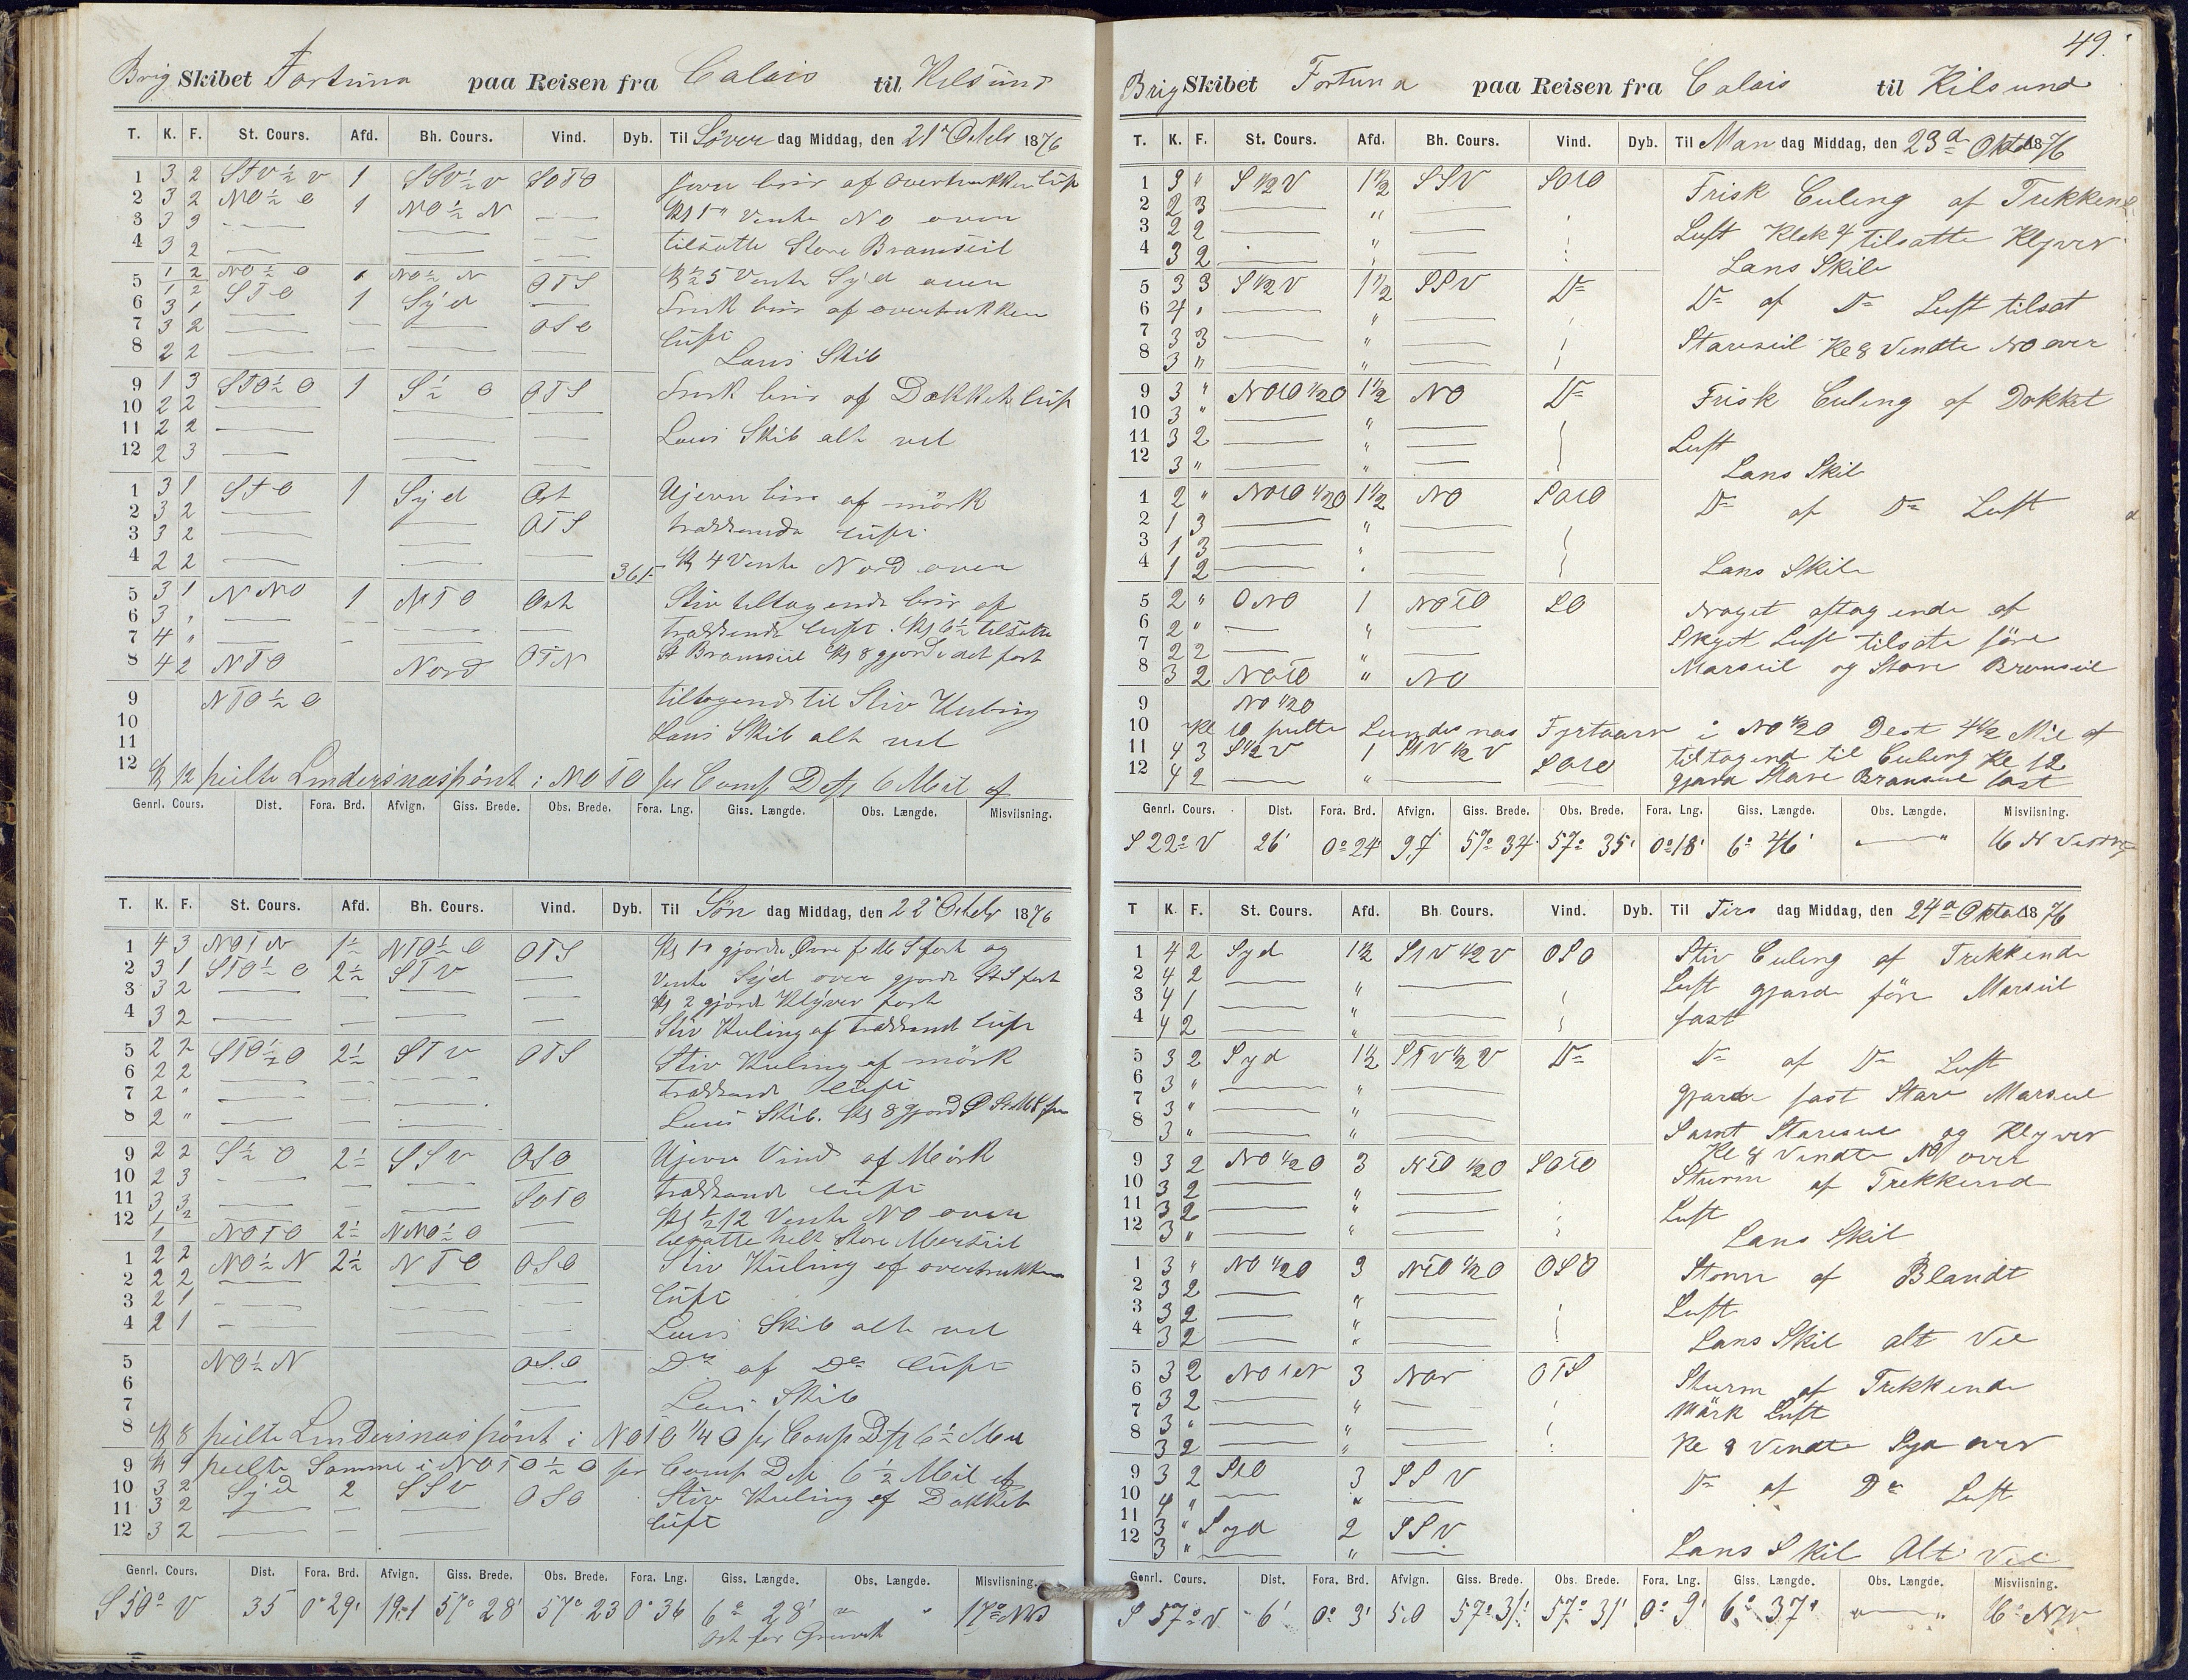 Brig Skibet Fortuna paa Reisen fra Calais til Kilsund
T. K. F. St. Cours. Afd. Bh. Cours. Vind. Dyb. Til Löver dag Middag, den 21de Octob 1876
1 3 2 STV½V 1 SSV½V SOTO Jevn bris af Overtrukken luft
2 3 2 NO½O 1 NO½N — Kl 1 Vente NO over
3 3 3 — — — tilsatte Store Bramseil
4 3 2 — — —
5 1 2 NO½O NO½N OTS Kl ½5 Vente Syd over
1 2 STO 1 Syd — Frisk bris af overtrukken
6 3 1 — — — OSO luft
7 3 2 — — —
8 2 2 — — — Lens Skib
9 1 3 STO½O 1 S½O OTS Frisk bris af Dækket luft
10 2 2 — — —
11 2 2 — — — Lens Skib alt vel
12 2 3 — — —
1 3 1 STO 1 Syd Ost Ujevn bris af mörk
2 3 2 — — OTS trækkende luft
3 3 2 — — —
4 2 2 — — Kl 4 Vente Nord over
5 3 1 NNO 1 NTO Ost Stiv tiltagende bris af
6 3 " — — — trækkende luft. Kl 6½ tilsatte
7 4 " — — — St Bramseil Kl 8 gjorde det fast
8 4 2 NTO Nord OTN
9 NTO½O tiltagende til Stiv Kuling
10
11 Lens Skib alt vel
12 Kl 12 peilte Lindersnæspönt i NOTO pr Comp Dist 6 Mil af
Genrl. Cours. Dist. Fora. Brd. Afvign. Giss. Brede. Obs. Brede. Fora. Lng. Giss. Længde. Obs. Længde. Misviisning.
T. K. F. St. Cours. Afd. Bh. Cours. Vind. Dyb. Til Sön dag Middag, den 22de Octob 1876
1 4 3 NOTN 1½ NTO½O OTS Kl 1 gjorde Övre f M S fast og
2 3 1 STO½O 2½ STV — Vente Syd over gjorde St S fast
3 3 2 — — — Kl 2 gjorde Klyver fast
4 3 2 — — — Stiv Kuling af trækkende luft
5 2 2 STO½O 2½ STV OTS Stiv Kuling af mörk
6 2 2 — — — trækkende luft
7 2 " — — —
8 2 " — — — Lens Skib. Kl 8 gjord
9 2 2 S½O 2½ SSV OSO Ujevn Vind af Mörk
10 2 3 — — — trækkende luft
11 3 3 — — — SOTO Kl ½12 Vente NO over
12 1 2 — NOTO 2½ NNO½O — tilsatte helt Store Merseil
1 2 2 NO½N 2½ NTO OSO Stiv Kuling af overtrukken
2 2 2 — — — luft
3 2 1 — — —
4 2 1 — — — Lens Skib alt vel
5 NO½N OSO Do af Do luft
6 —
7 — Lens Skib
8 Kl 8 peilte Lindersnæspönt i NOTO ¼ O pr Comp Dist 6½ Mil
9 Kl 9 peilte Samme i NOTO½O pr Comp Dist 6½ Mil af
10 3 2 Syd 2 SSV OSO Stiv Kuling af Dækket
11 3 2 — — — luft
12 3 2 — — —
Genrl. Cours. Dist. Fora. Brd. Afvign. Giss. Brede. Obs. Brede. Fora. Lng. Giss. Længde. Obs. Længde. Misviisning.
S 50° V 35 0° 29' 19.1 57° 28' 57° 23 0° 36 6° 28' " " 17°
Ost for Grenvk
49.
Brig Skibet Fortuna paa Reisen fra Calais til Kilsund
T. K. F. St. Cours. Afd. Bh. Cours. Vind. Dyb. Til Man dag Middag, den 23de Oktob 1876
1 3 " S ½ V 1½ SSV SOtO Frisk Culing af Trekkend
2 2 3 — " — Luft Klok 4 tilsatte Klyver
3 2 2 — —
4 3 2 — " — Lens Skib
5 3 3 S ½ V 1½ SSV Do Do af Do Luft tilsat
6 4 " — " —
7 3 3 — " — Stareseil Kl 8 Vendte NO over
8 3 " — " —
9 3 " NOtO ½ O 1½ NO Do Frisk Culing af Dækket
10 3 " — " —
11 3 2 — " — Luft
12 3 " — " — Lens Skib
1 2 " NOtO ½ O 1½ NO SOtO Do af Do Luft
2 1 3 — " —
3 1 3 — " —
4 1 2 — " — Lens Skib
5 2 " ONO 1 NOTO SO Noget aftagende af
6 2 " — " — Skyet Luft tilsate före
7 2 2 — " — Marseil og Store Bramseil
8 3 2 NOtO " NO
9 NO ½ O
10 Kl 10 peilte Lindesnæs Fyrtaarn i NO ½ O Dest 4½ Mil af
11 4 3 S½V 1 StV ½ V tiltagend til Culing Kl 12
12 4 2 — " — SOtO gjorde Store Bramseil fast
Genrl. Cours. Dist. Fora. Brd. Afvign. Giss. Brede. Obs. Brede. Fora. Lng. Giss. Længde. Obs. Længde. Misviisning.
S 22° V 26' 0° 24' 9,7 57° 34' 57° 35' 0° 18' 6° 46' — "
T K. F. St. Cours. Afd. Bh. Cours. Vind. Dyb. Til Tirs dag Middag, den 24de Oktob 1876
1 4 2 Syd 1½ StV ½ V OSO Stiv Culing af Trekkende
2 4 2 — — Luft gjorde före Marseil
3 4 1 — " — fast
4 4 2 — " —
5 3 2 Syd 1½ STV ½ V Do Do af Do Luft
6 3 " — " — gjorde fast Store Marseil
7 3 " — " —
8 3 " — " — Samt Stareseil og Klyver
Kl 8 Vendte NO over
9 3 2 NO ½ O 3 NtO ½ O SOtO Sturm af Trekkend
10 3 2 — " —
11 3 2 — " — Luft
12 3 " — " — Lens Skib
1 3 " NO ½ O 3 NtO ½ O OSO Storm af Blandt
2 3 2 — " — Luft
3 3 2 — " —
4 3 2 — " — Lens Skib alt Vel
5 3 2 NOtN 3 OTS Sturm af Trekkende
6 3 2 — " — Mörk Luft
7 3 " — " —
8 3 2 — " — Kl 8 Vendte Syd over
9 3 2 StO 3 SSV Do af Do Luft
10 4 " — " —
11 3 " Syd 2 SSV
12 3 " — " — Lens Skib Alt Vel
Genrl. Cours. Dist. Fora. Brd. Afvign. Giss. Brede. Obs. Brede. Fora. Lng. Giss. Længde. Obs. Længde. Misviisning.
S 57° V 6' 0° 3' 5,0 57° 31' 57° 31' 0° 9' 6° 37' " — " 16°